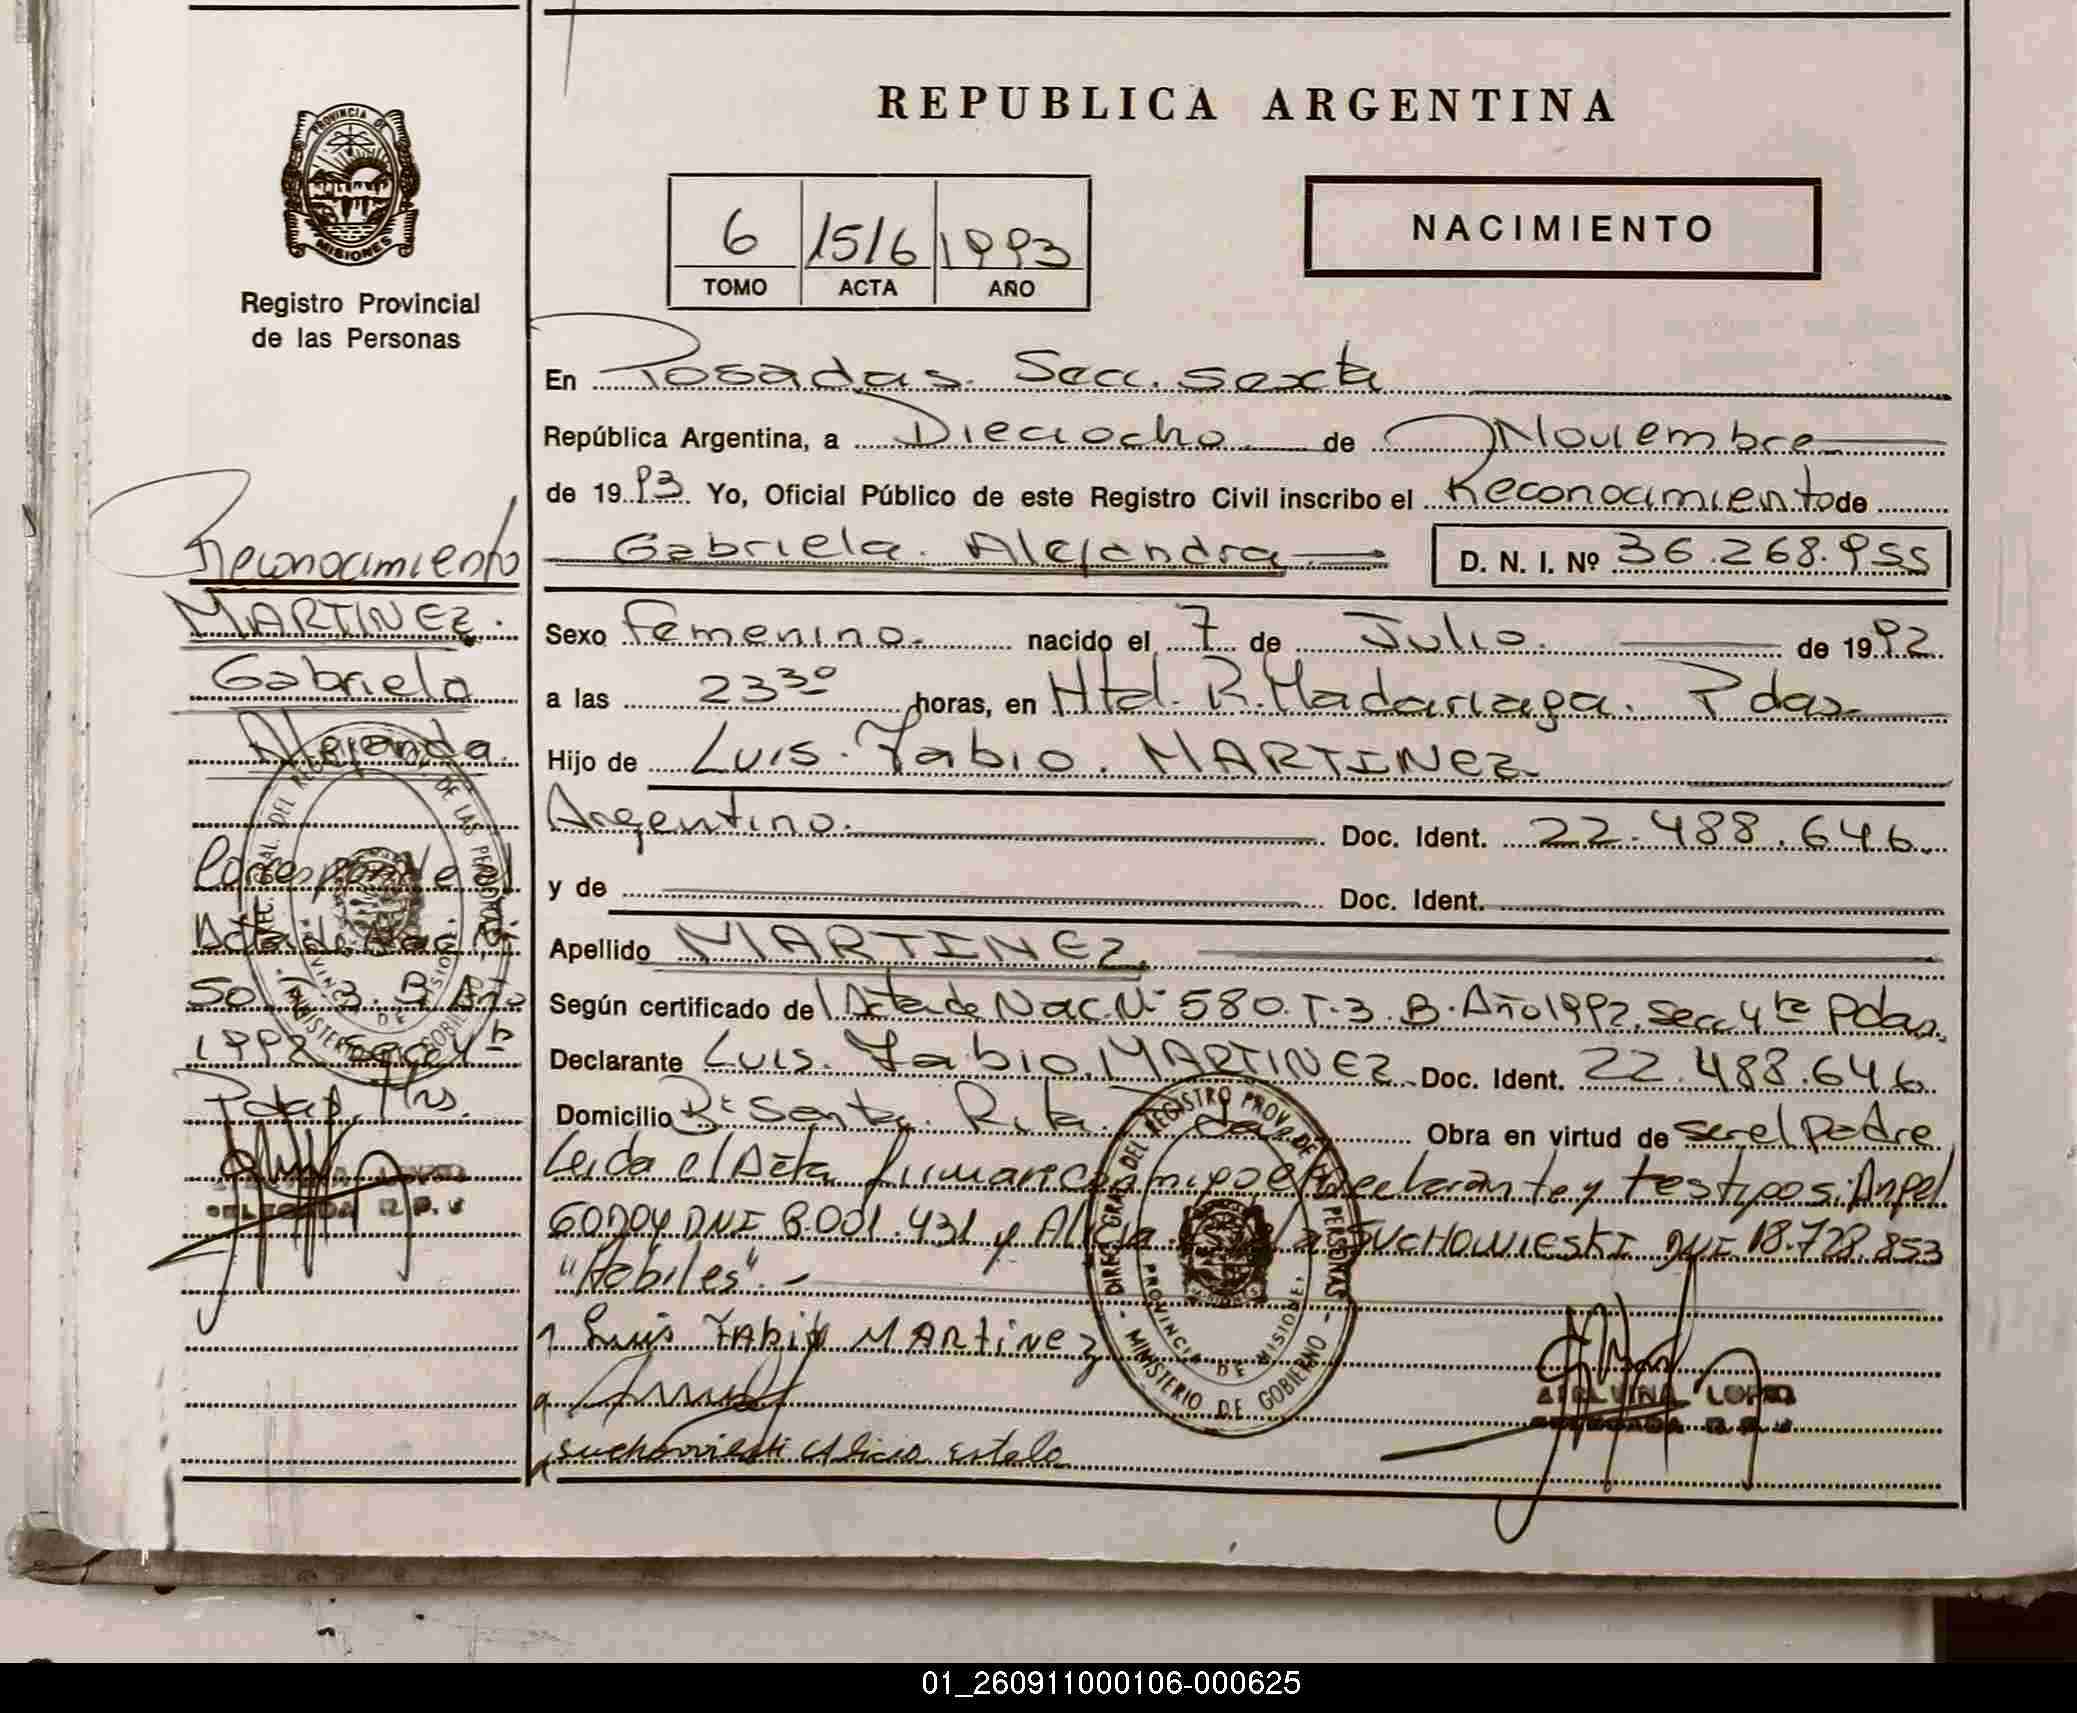 REPUBLICA ARGENTINA
PROVINCIA DE
MISIONES
Registro Provincial
de las Personas
6 1516 1993
TOMO ACTA AÑO
NACIMIENTO
En Posadas. Secc. sexta
República Argentina, a Dieciocho de Noviembre
de 1993 Yo, Oficial Público de este Registro Civil inscribo el Reconocimiento de
Gabriela. Alejandra D. N. I. Nº 36.268.955
Sexo Femenino. nacido el 7 de Julio. de 1992
a las 23 30 horas, en Htal. R. Madariaga. Pdas.
Hijo de Luis. Fabio. MARTINEZ
Argentino. Doc. Ident. 22.488.646.
y de Doc. Ident.
Apellido MARTINEZ.
Según certificado de Acta de Nac. Nº 580. T. 3. B. Año 1992. Secc 4ta Pdas.
Declarante Luis. Fabio. MARTINEZ Doc. Ident. 22.488.646
Domicilio Bº Santa. Rita. Obra en virtud de ser el padre
Leida el Acta firman conmigo el declarante y testigos: Angel
GODOY DNI 8.001.431 y Alicia SUCHOWIESKI DNI 18.728.853
"Habiles". -
Luis FABIO MARTINEZ
Suchowieski Alicia Estela
LOPEZ
DELEGADA R.P.
DIREC. GRAL. DEL REGISTRO PROV. DE LAS PERSONAS
PROVINCIA DE MISIONES
MINISTERIO DE GOBIERNO
Reconocimiento
MARTINEZ.
Gabriela
Alejandra.
Corresponde al
Acta de Nac Nº
T 3. B. Año
1992 Secc 4ta
Pdas. Mns.
LOPEZ
DELEGADA R.P.
01_260911000106-000625